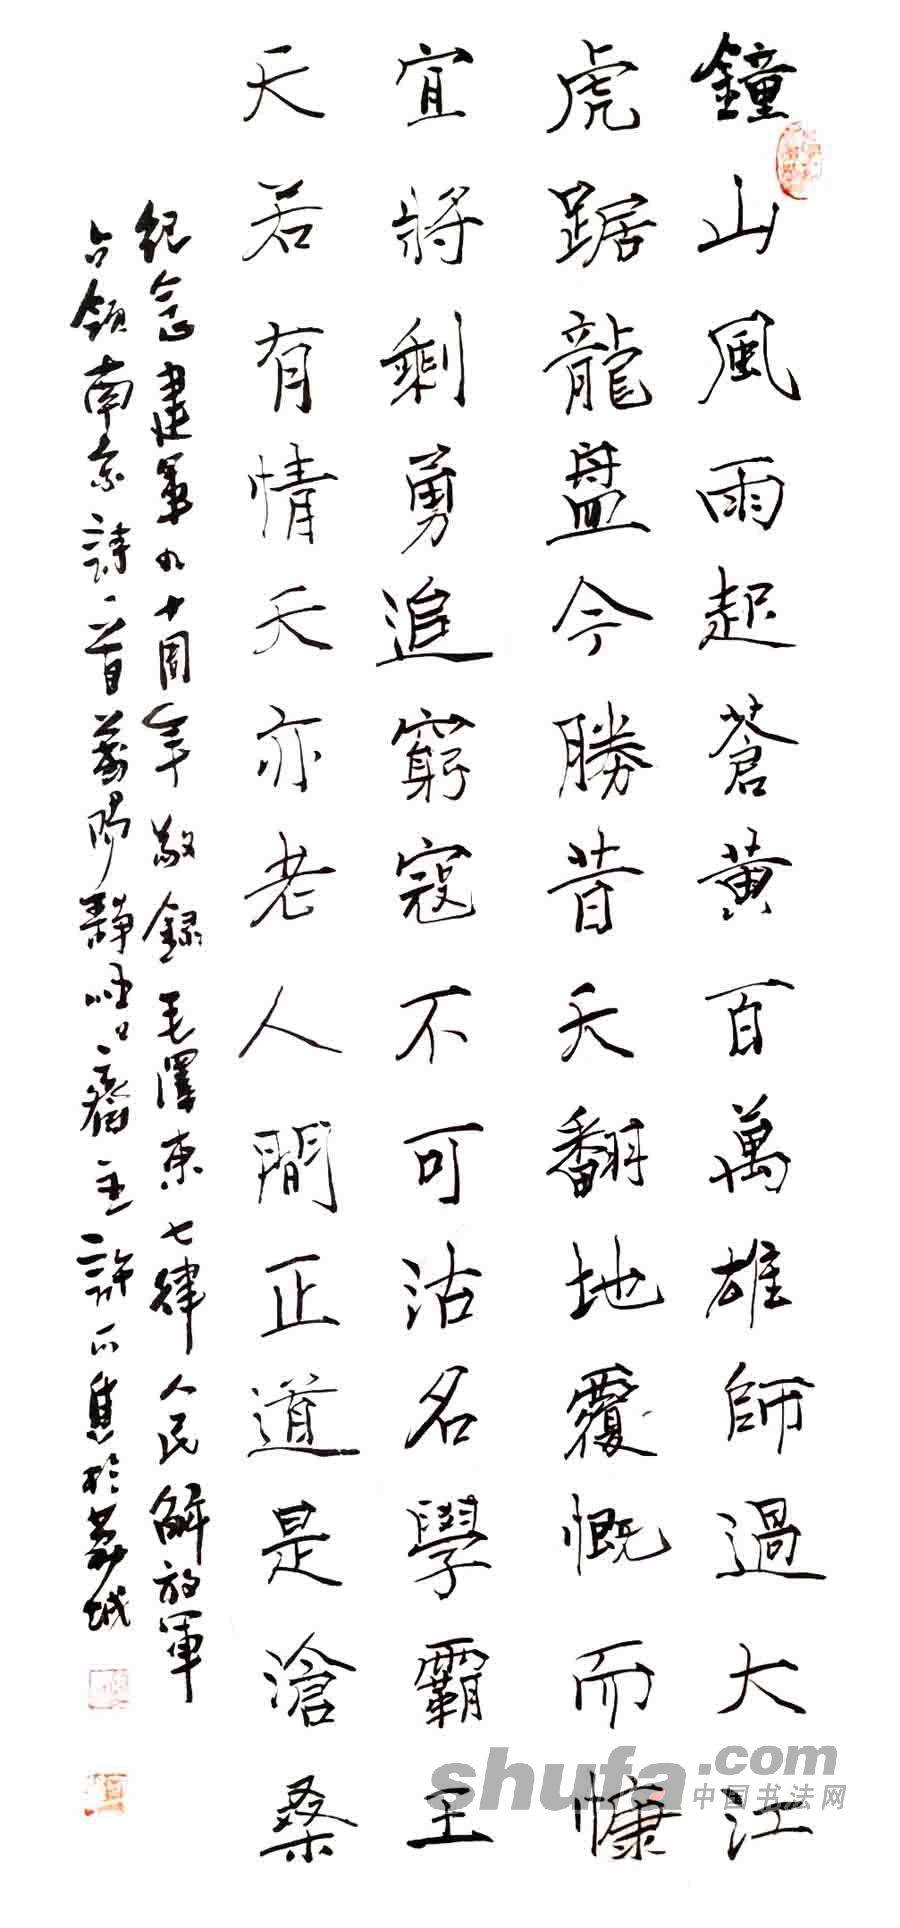 鐘山風雨起蒼黃百萬雄師過大江
虎踞龍盘今勝昔天翻地覆慨而慷
宜將剩勇追窮寇不可沽名學霸王
天若有情天亦老人間正道是滄桑
紀念建軍九十周年敬錄毛澤東七律人民解放軍
占領南京詩一首莆陽靜齋主許於荔城
shufa.com
中国书法网